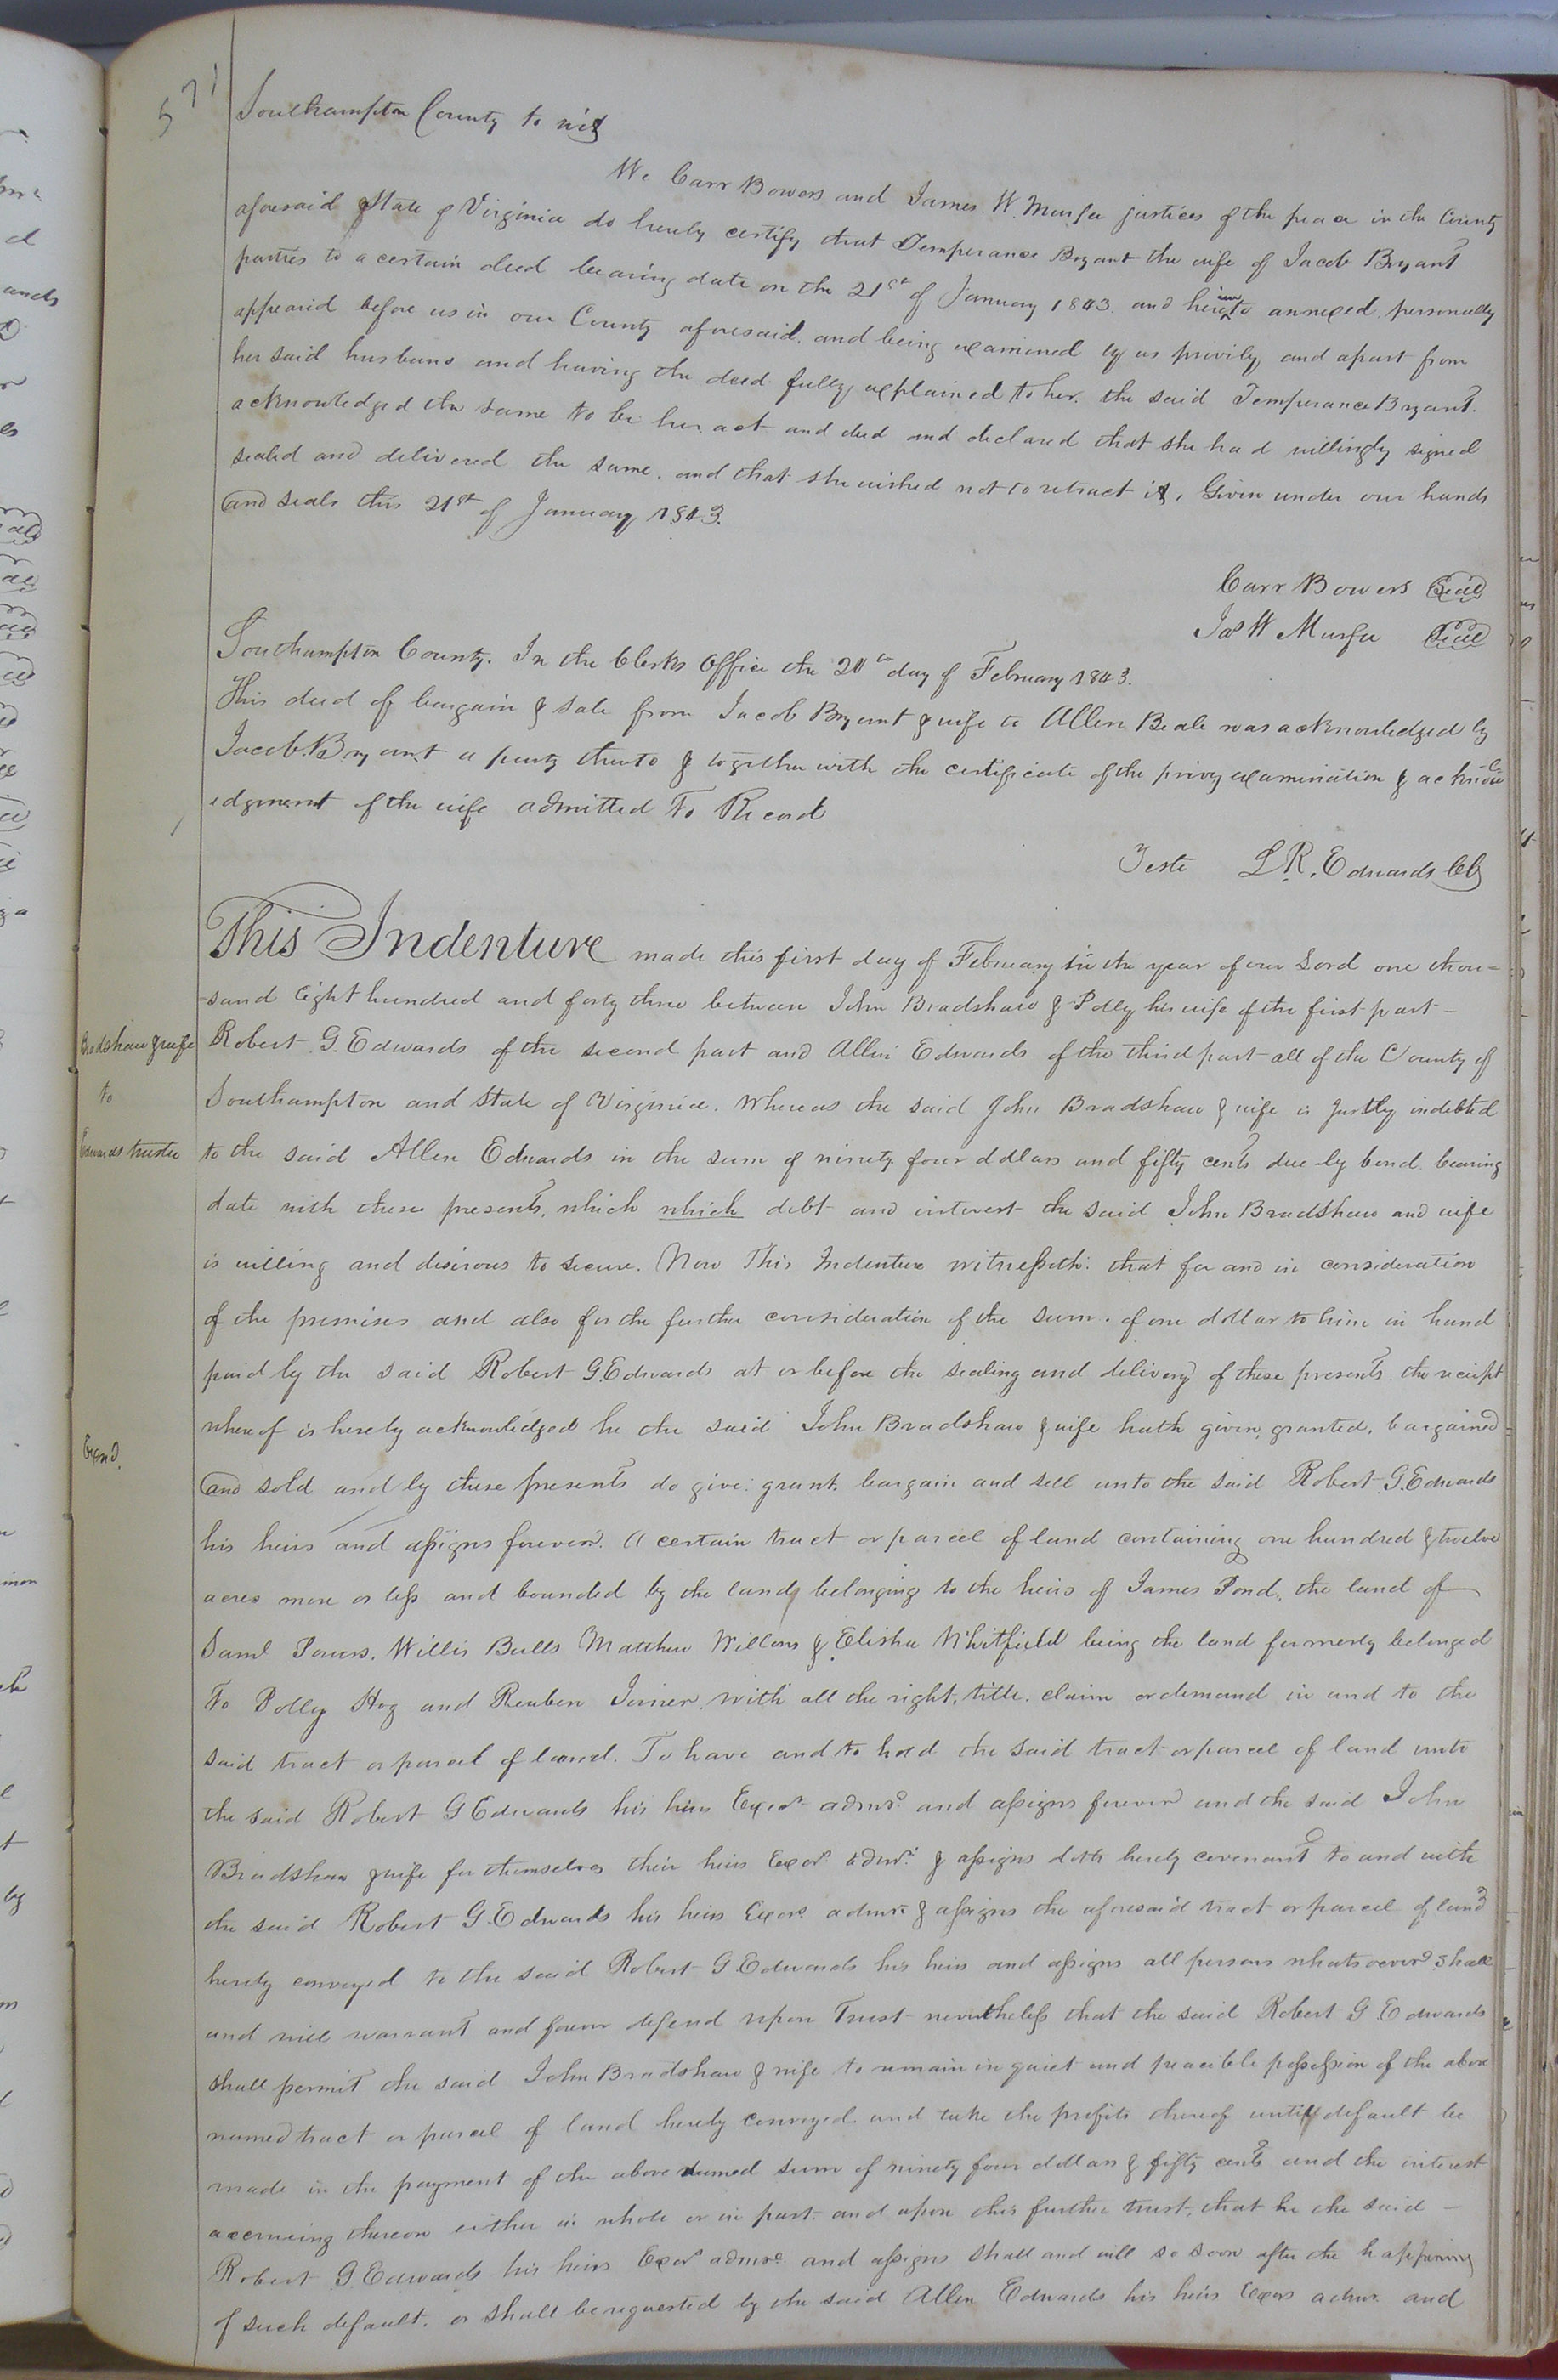 571
Southampton County to wit
We Carr Bowers and James W. Murfee justices of the peace in the County
aforesaid & State of Virginia do hereby certify that Temperance Bryant the wife of Jacob Bryant
parties to a certain deed bearing date on the 21st of January 1843. and hereunto annexed personally
appeared before us in our County aforesaid, and being examined by us privily and apart from
her said husband and having the deed fully explained to her. the said Temperance Bryant.
acknowledged the same to be her act and deed and declared that she had willingly signed
sealed and delivered the same, and that she wished not to retract it, Given under our hands
and seals this 21st of January 1843.
Carr Bowers Seal
Jas W Murfee Seal
Southampton County. In the Clerks Office the 20th day of February 1843.
This deed of bargain & sale from Jacob Bryant & wife to Allen Beale was acknowledged by
Jacob Bryant a party thereto & together with the certificate of the privy examination & acknow
ledgment of the wife admitted to Record
Teste L. R. Edwards Clk
This Indenture made this first day of February in the year of our Lord one thou=
=sand eight hundred and forty three between John Bradshaw & Polly his wife of the first part –
Bradshaw & wife
to
Edwards trustee
Robert G. Edwards of the second part and Allen Edwards of the third part all of the County of
Southampton and State of Virginia. Whereas the said John Bradshaw & wife is justly indebted
to the said Allen Edwards in the sum of ninety four dollars and fifty cents due by bond bearing
date with these presents, which which debt and interest the said John Bradshaw and wife
is willing and desirous to secure. Now This Indenture witnesseth: that for and in consideration
of the premises and also for the further consideration of the sum. of one dollar to him in hand
paid by the said Robert G. Edwards at or before the sealing and delivery of these presents. the receipt
Exmd.
whereof is hereby acknowledged he the said John Bradshaw & wife hath given, granted, bargained
and sold and by these presents do give. grant. bargain and sell unto the said Robert G. Edwards
his heirs and assigns forever. A certain tract or parcel of land containing one hundred & twelve
acres more or less and bounded by the lands belonging to the heirs of James Pond, the land of
Saml Powers, Willis Bulls Matthew Willons & Elisha Whitfield being the land formerly belonged
To Polly Hog and Reuben Joiner. with all the right, title. claim or demand in and to the
said tract or parcel of land. To have and to hold the said tract or parcel of land unto
the said Robert G Edwards his heirs Exors. admrs. and assigns forever and the said John
Bradshaw & wife for themselves their heirs Exors. admrs. & assigns doth hereby covenant to and with
the said Robert G. Edwards his heirs Exors. admrs & assigns the aforesaid tract or parcel of land
hereby conveyed to the said Robert G Edwards his heirs and assigns all persons whatsoever shall
and will warrant and forever defend upon Trust nevertheless that the said Robert G Edwards
shall permit the said John Bradshaw & wife to remain in quiet and peacible possession of the above
named tract or parcel of land hereby conveyed. and take the profits thereof until default be
made in the payment of the above named sum of ninety four dollars & fifty cents and the interest
accrueing thereon either in whole or in part. and upon this further trust, that he the said –
Robert G. Edwards his heirs Exors admrs. and assigns shall and will so soon after the happening
of such default. or shall be requested by the said Allen Edwards his heirs Exors admrs. and